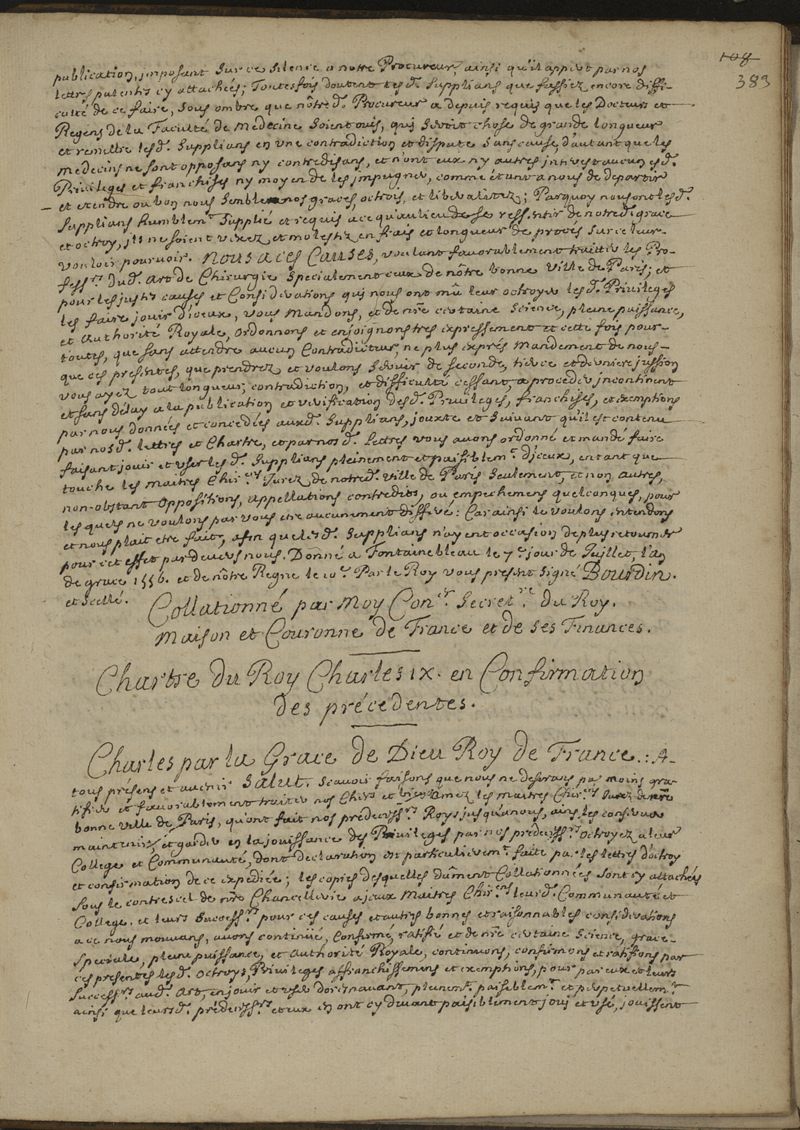 108
383
publication, imposant sur ce silence a notre Procureur, ainsi qu'il appert par nos
lettres patentes cy attachées; Toutesfois doutent lesd. Supplians que fassiez encore diffi-
culté de ce faire, sous ombre que notred. Procureur a depuis requis que les Docteurs et
Regens de la Faculté de Medecine soient ouis, qui seroit chose de grande longueur
et remettre lesd. Supplians en une contradiction et dispute sans cause, d'autant que les
medecins ne sont opposans ny contredisans, et n'ont eux ny autres interest aucun esd.
Privileges et franchises ny moyen de les impugner, comme étant a nous de departir
et étendre ou bon nous semble nos graces, octrois, et liberalitez; Parquoy nous ont lesd.
Supplians humblemt. supplié et requis a ce qu'au lieu de se ressentir de notred. grace
et octroy, ils ne soient vexez et molestez en frais et longueur de procés sur ce leur
vouloir pourvoir. Nous a ces Causes, voulant favorablement traitter les Pro-
fessrs. dud. Art de Chirurgie specialement ceux de nôtre bonne Ville de Paris; et
pour les justes causes et Considerations qui nous ont mû leur octroyer lesd. Privileges
les faire jouir d'iceux, vous Mandons, et de nre certaine Science, pleine puissance,
et Authorité Royale, ordonnons et enjoignons tres expressement et cette fois pour
toutes, que sans attendre aucun Contradicteur, ne plus exprés Mandement de nous
que ces presentes, que prendrez et voulons servir de seconde, tierce et derniere jussion
vous ayez tout longueur, contradiction, et difficulté cessant, a proceder incontinent
et sans delay a la publication et verification desd. Privileges, franchises, et exemptions
par nous données et concedées auxd. Supplians, jouxte et suivant qu'il est contenu
par nosd. lettres et Chartre, et par nosd. Lettres vous avons ordonné et mandé faire
faisant jouir et user lesd. Supplians pleinement et paisiblemt. d'iceux, en tant que
touche les maitres Chirns. Jurez de notred. Ville de Paris seulement, et non autres,
non-obstant Oppositions, appellations contredits, ou empechemens quelconques, pour
les quels ne voulons par vous etre aucunement differé: Car ainsi le voulons, intendons
et nous plait etre fait, afin que lesd. Supplians n'ayent occasion de plus retourner
pour cet effet pardevers nous. Donné a Fontainebleau le 7e. jour de Juillet, l'an
de grace 1556. et de nôtre Regne le 10e. Par le Roy vous present signé Bourdin.
et scellé.
Collationné par Moy Coner. Secretre. du Roy.
Maison et Couronne de France et de ses Finances.
Chartre du Roy Charles IX. en Confirmation
des précedentes.
Charles par la Grace de Dieu Roy de France.: A-
tous présens et avenir Salut. Scavoir faisons que nous ne desirans pas moins gra-
tifier et favorablement traiter nos Chers et bien Amez les maitres Chirns. Jurez de nre
bonne ville de Paris, qu'ont fait nos prédecessrs. Roys jusqu'a nous, ains les conserver
maintenir et garder en la jouissance des Privileges par nos prédecessrs. octroyez a leur
College et Communauté, dont declaration est particulieremt. faite par les lettres d'octroy
et confirmation de ce expediée; les copies desquelles dûment Collationnées sont cy attachées
sous le contrescel de nre Chancellerie a iceux Maitres Chirns. leurd. Communauté et
College, et leurs Successrs. pour ces causes et autres bonnes et raisonnables considerations
a ce nous mouvans, avons continué, Confirmé, ratifié et de nre certaine Science, grace-
speciale, pleine puissance, et Authorité Royale, continuons, confirmons et ratifions par
ces presentes lesd. Octroys, Privileges affranchissemens et exemptions, pour par eux et leurs
Successrs. aud. Art, en jouir et user doresnavant, pleinemt. paisiblemt. et perpetuellemt.
ainsi que leursd. prédecessrs. et eux en ont cy devant paisiblement joui et usé, jouissent